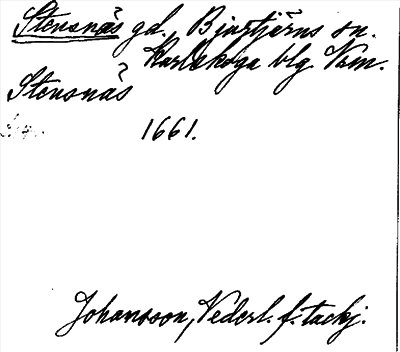 Stensnäs gd. Bjurtjärns sn.
Karlskoga blg Vrm.
Stensnäs
1661.
Johansson, Vederl. f. tackj.